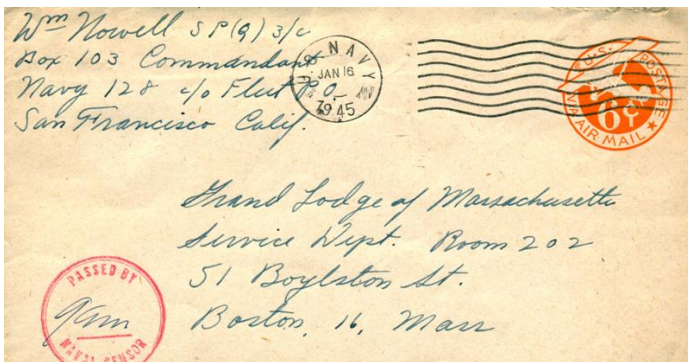 Wm Nowell SP(Q) 3/c
Box 103 Commandant
Navy 128 c/o Fleet P.O.
San Francisco Calif.
U.S. NAVY
JAN 16
1945
U.S. POSTAGE
6¢
VIA AIR MAIL
Grand Lodge of Massachusetts
Service Dept. Room 202
51 Boylston St.
Boston, 16, Mass
PASSED BY
NAVAL CENSOR